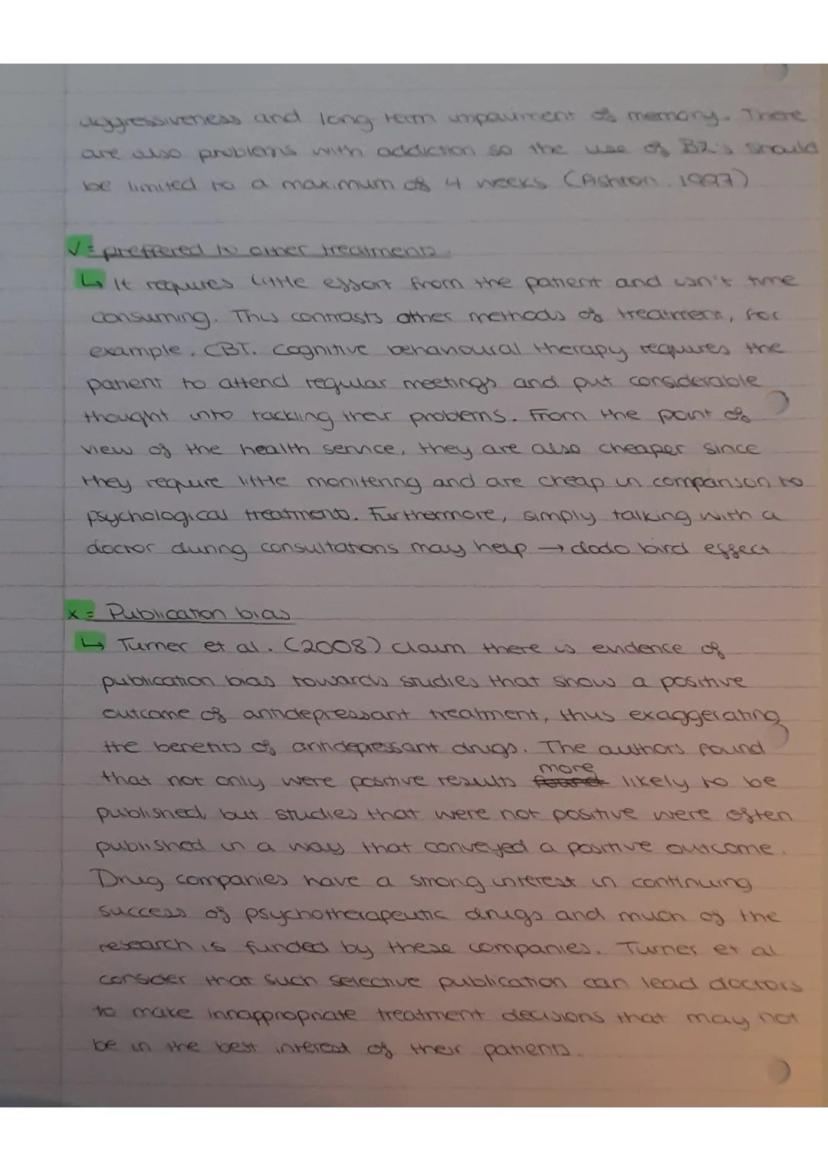 aggressiveness and long term impairment of memory. There
are also problems with addiction so the use of BZ's should
be limited to a maximum of 4 weeks (Ashton, 1997)
√ = preffered to other treatments
↳ It requires little effort from the patient and isn't time
consuming. This contrasts other methods of treatment, for
example, CBT. Cognitive behavioural therapy requires the
patient to attend regular meetings and put considerable
thought into tackling their problems. From the point of
view of the health service, they are also cheaper since
they require little monitering and are cheap in comparison to
psychological treatments. Furthermore, simply talking with a
doctor during consultations may help → dodo bird effect
x = Publication bias
↳ Turner et al. (2008) claim there is evidence of
publication bias towards studies that show a positive
outcome of antidepressant treatment, thus exaggerating
the benefits of antidepressant drugs. The authors found
that not only were positive results more likely to be
published, but studies that were not positive were often
published in a way that conveyed a positive outcome.
Drug companies have a strong interest in continuing
success of psychotherapeutic drugs and much of the
research is funded by these companies. Turner et al
consider that such selective publication can lead doctors
to make innappropriate treatment decisions that may not
be in the best interest of their patients.